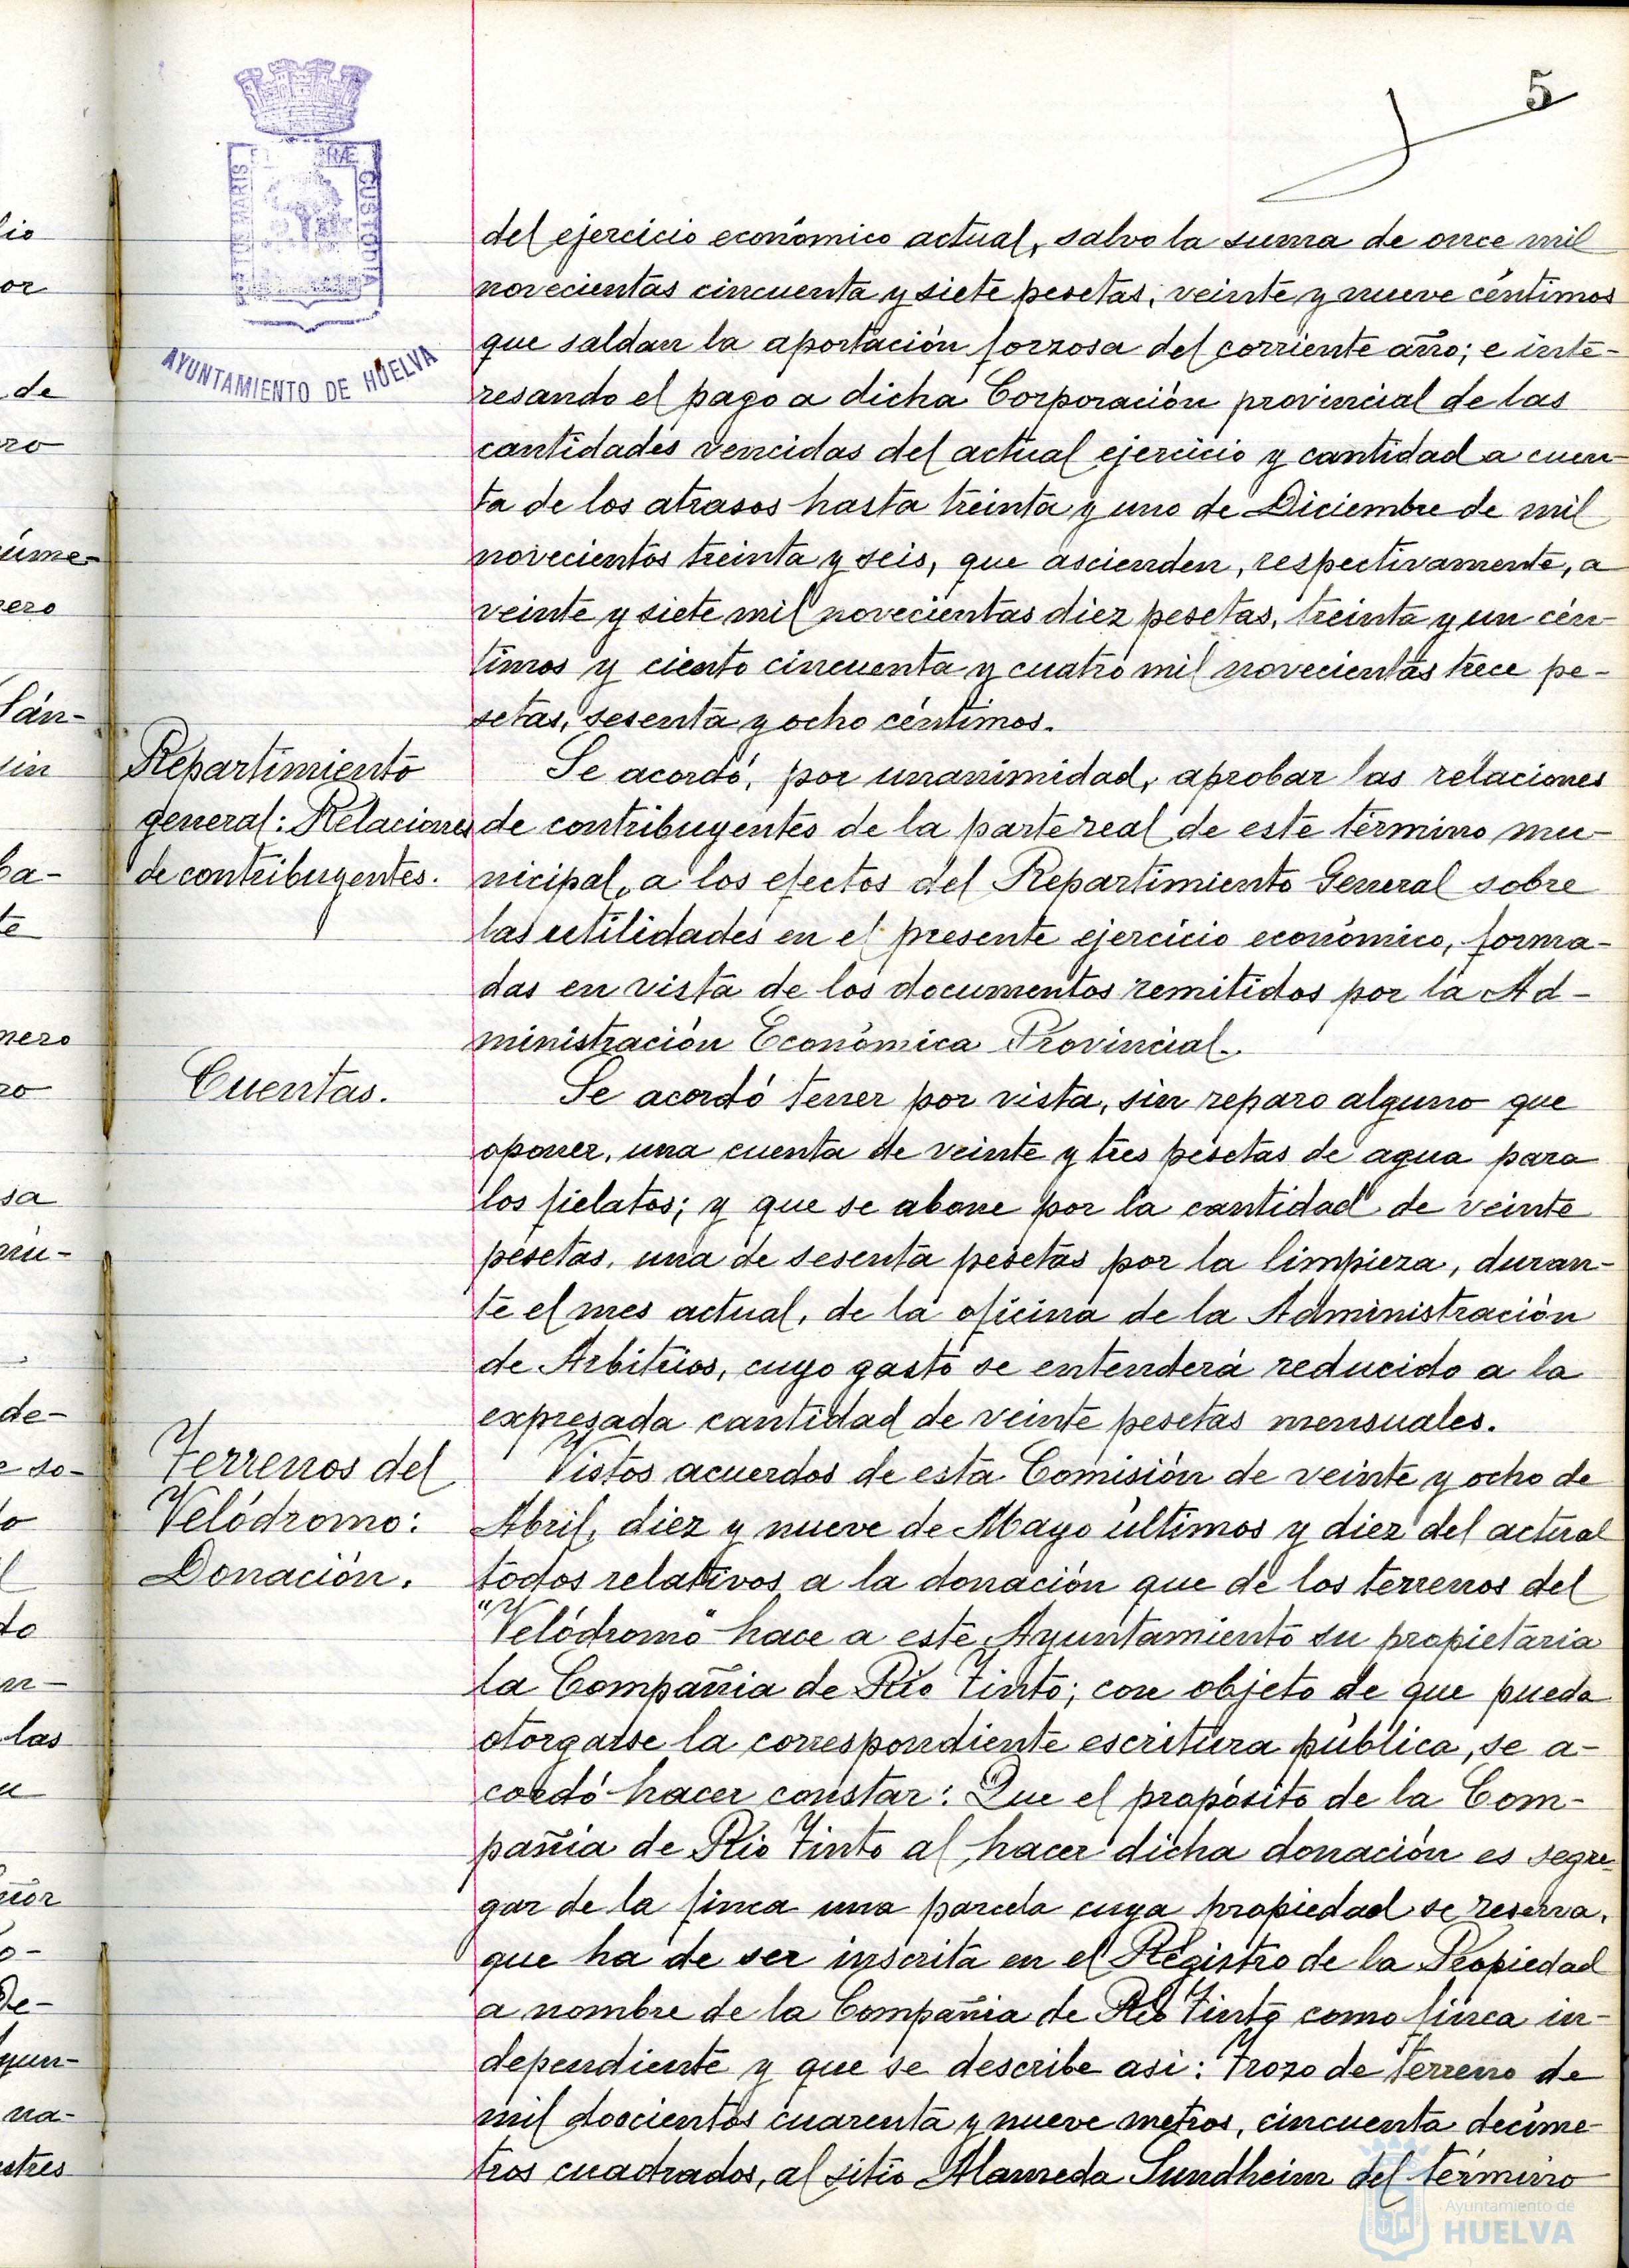 5
del ejercicio económico actual, salvo la suma de once mil
novecientas cincuenta y siete pesetas, veinte y nueve céntimos
que saldan la aportación forzosa del corriente año; e inte-
resando el pago a dicha Corporación provincial de las
cantidades vencidas del actual ejercicio y cantidad a cuen-
ta de los atrasos hasta treinta y uno de Diciembre de mil
novecientos treinta y seis, que ascienden, respectivamente, a
veinte y siete mil novecientas diez pesetas, treinta y un cén-
timos y ciento cincuenta y cuatro mil novecientas trece pe-
setas, sesenta y ocho céntimos.
Repartimiento
general: Relaciones
de contribuyentes.
Se acordó, por unanimidad, aprobar las relaciones
de contribuyentes de la parte real de este término mu-
nicipal, a los efectos del Repartimiento General sobre
las utilidades en el presente ejercicio económico, forma-
das en vista de los documentos remitidos por la Ad-
ministración Económica Provincial.
Cuentas.
Se acordó tener por vista, sin reparo alguno que
oponer, una cuenta de veinte y tres pesetas de agua para
los fielatos; y que se abone por la cantidad de veinte
pesetas, una de sesenta pesetas por la limpieza, duran-
te el mes actual, de la oficina de la Administración
de Arbitrios, cuyo gasto se entenderá reducido a la
expresada cantidad de veinte pesetas mensuales.
Terrenos del
Velódromo:
Donación.
Vistos acuerdos de esta Comisión de veinte y ocho de
Abril, diez y nueve de Mayo últimos y diez del actual
todos relativos a la donación que de los terrenos del
"Velódromo" hace a este Ayuntamiento su propietaria
la Compañia de Rio Tinto; con objeto de que pueda
otorgarse la correspondiente escritura pública, se a-
cordó hacer constar: Que el propósito de la Com-
pañia de Rio Tinto al hacer dicha donación es segre-
gar de la finca una parcela cuya propiedad se reserva,
que ha de ser inscrita en el Registro de la Propiedad
a nombre de la Compañia de Rio Tinto como finca in-
dependiente y que se describe asi: Trozo de terreno de
mil doscientos cuarenta y nueve metros, cincuenta decíme-
tros cuadrados, al sitio Alameda Sundheim del término
AYUNTAMIENTO DE HUELVA
MARIS
CUSTODIA
Ayuntamiento de
HUELVA